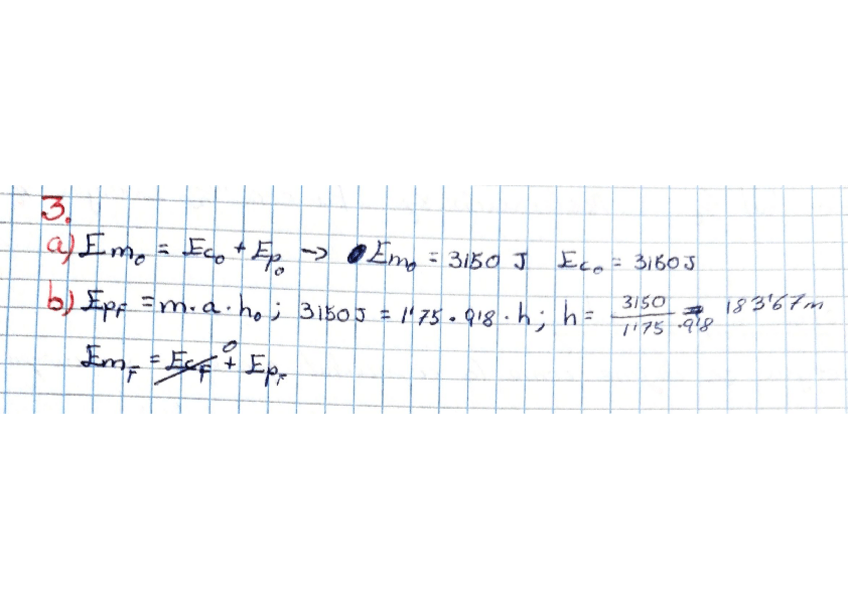 3.
a) Em₀ = Ec₀ + Ep₀ → Em₀ = 3150 J Ec₀ = 3150 J
b) EpF = m·a·h₀; 3150 J = 1'75 · 9'8 · h; h = 3150 / 1'75 · 9'8 = 183'67 m
EmF = EcF⁰ + EpF